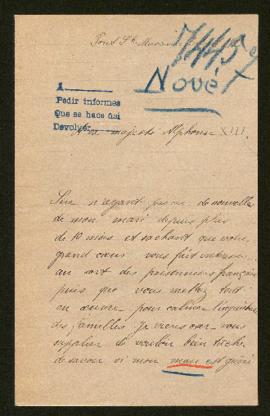 Pont Ste Maxence
74457
Nové
A
Pedir informes
Que se hace así
Devolver
A sa majesté Alphonse XIII
Sire n'ayant pas eu de nouvelles
de mon mari depuis plus
de 10 mois et sachant que votre
grand coeur vous fait intéresser
au sort des prisonniers français
puis que vous mettez tout
en oeuvre pour calmer l'inquiétude
des familles je viens car vous
supplier de vouloir bien tâcher
de savoir si mon mari est